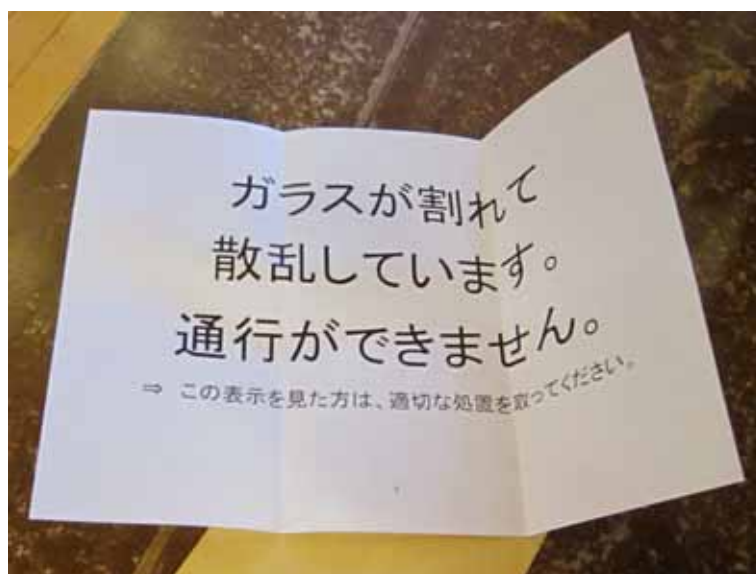 ガラスが割れて
散乱しています。
通行ができません。
⇒ この表示を見た方は、適切な処置を取ってください。